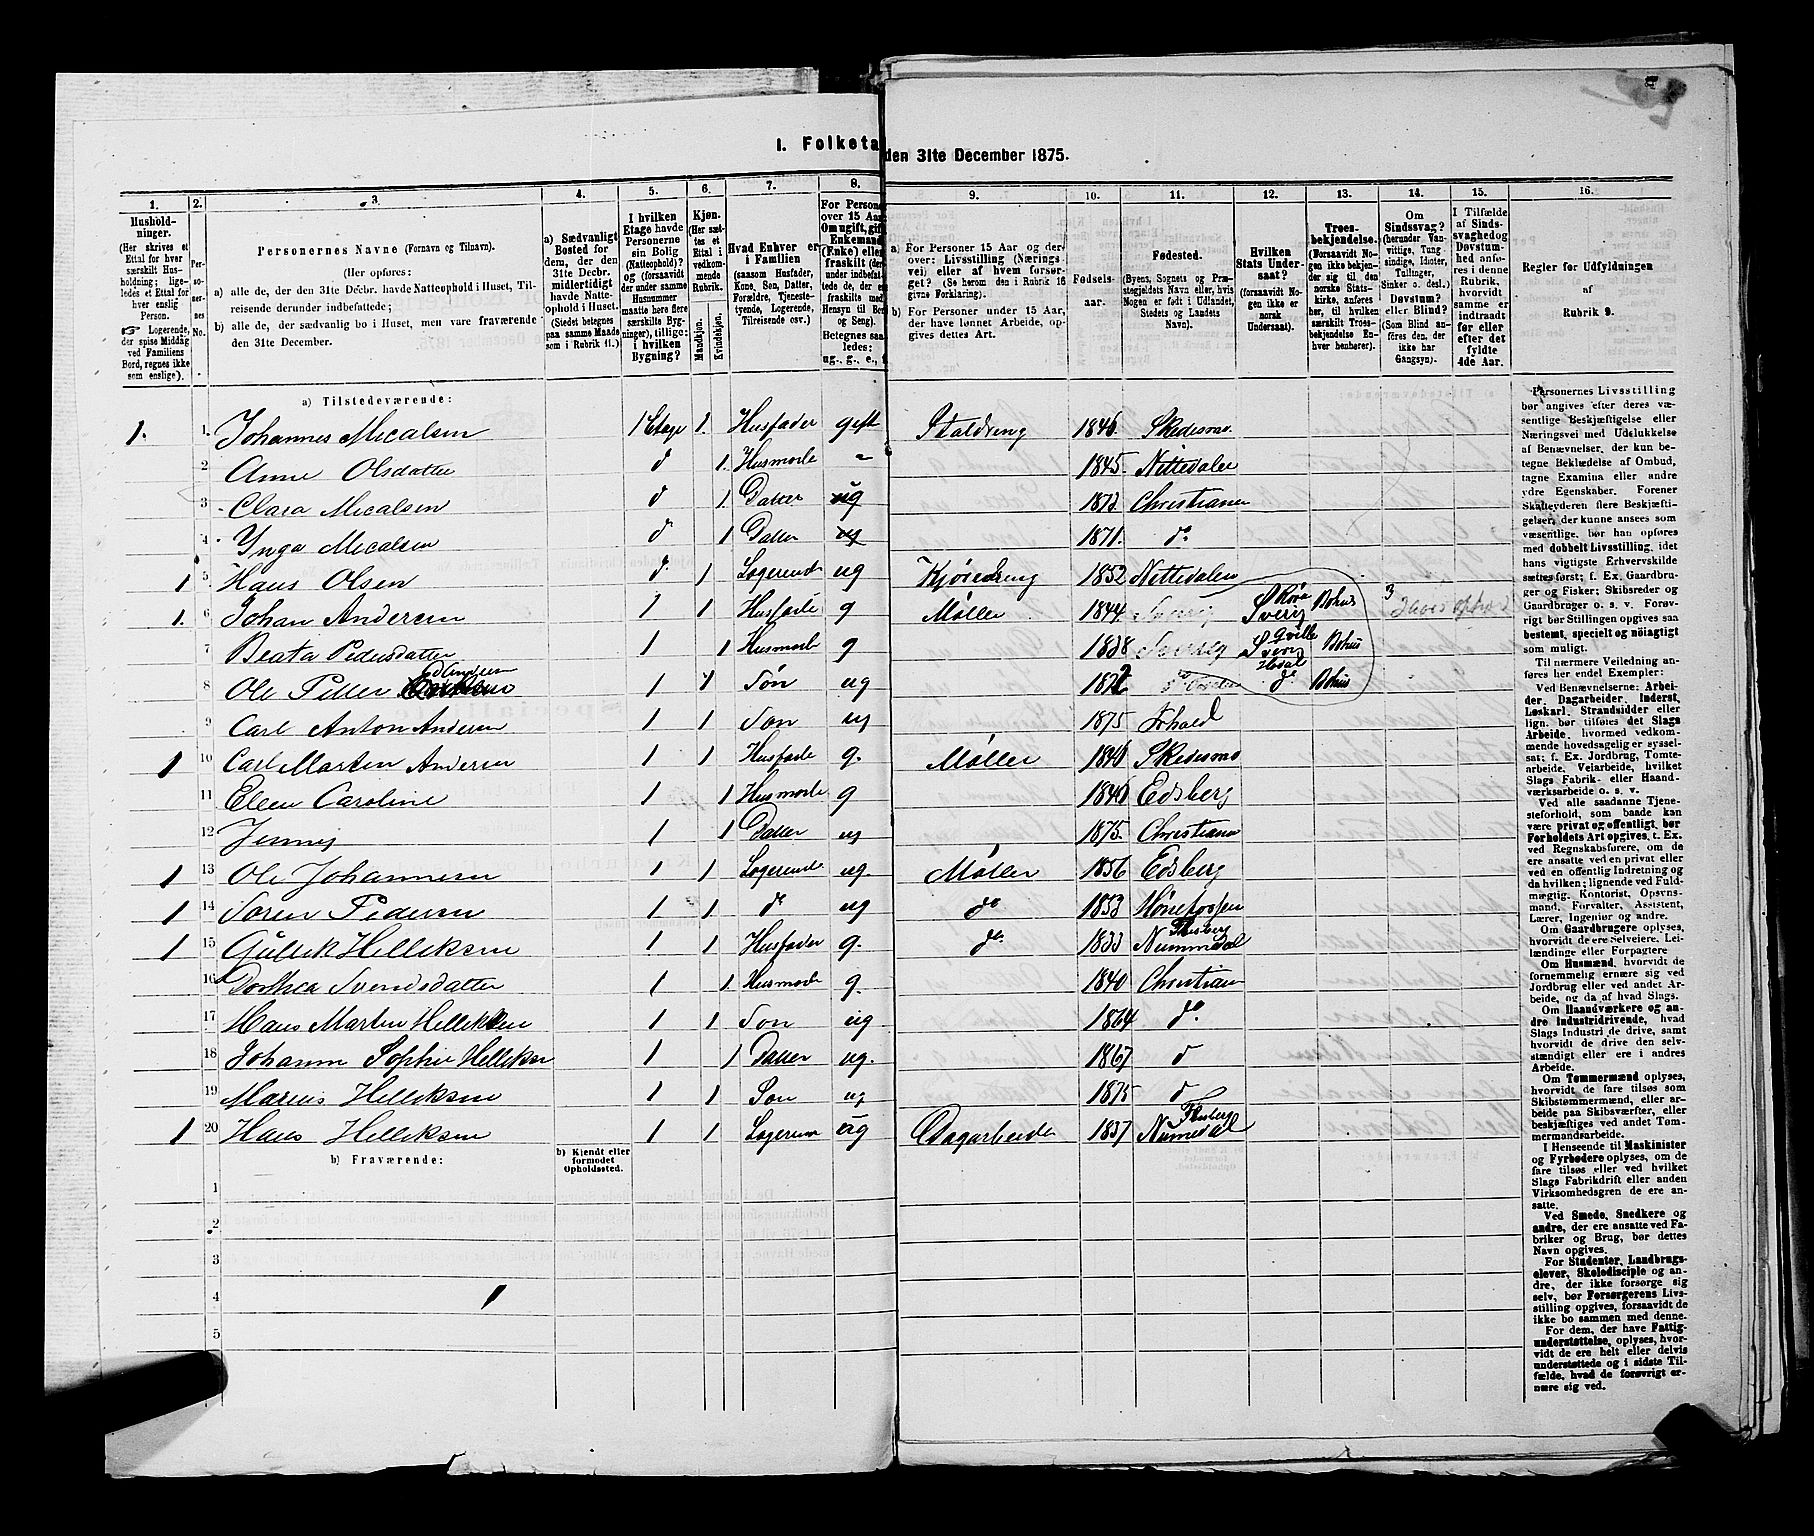 I. Folketa
den 31te December 1875.
1. 2. 3. 4. 5. 6. 7. 8. 9. 10. 11. 12. 13. 14. 15. 16.
Hushold-
ninger.
(Her skrives et
Ettal for hver
særskilt Hus-
holdning; lige-
ledes et Ettal for
hver enslig
Person.
Logerende,
der spise Middag
ved Familiens
Bord, regnes ikke
som enslige).
Per-
soner-
nes
No.
Personernes Navne (Fornavn og Tilnavn).
(Her opføres:
a) alle de, der den 31te Decbr. havde Natteophold i Huset, Til-
reisende derunder indbefattede;
b) alle de, der sædvanlig bo i Huset, men vare fraværende
den 31te December.
a) Sædvanligt
Bosted for
dem, der den
31te Decbr.
midlertidigt
havde Natte-
ophold i Huset.
(Stedet betegnes
paa samme Maade
som i Rubrik 11.)
I hvilken
Etage havde
Personerne
sin Bolig
(Natteophold)?
(forsaavidt
der under samme
Husnummer
maatte høre flere
særskilte Byg-
ninger), tillige:
i hvilken
Bygning?
Kjøn.
(Her sæt-
tes et
Ettal i
vedkom-
mende
Rubrik.
Mandkjøn.
Kvindekjøn.
Hvad Enhver er
i Familien
(saasom Husfader,
Kone, Søn, Datter,
Forældre, Tjeneste-
tyende, Logerende,
Tilreisende osv.)
For Persone
over 15 Aar
Om ugift, gift
Enkemand
(Enke) eller
fraskilt (der-
under indbefat-
tede de, der ere
fraskilte med
Hensyn til Bor
og Seng).
Betegnes saa-
ledes:
ug., g., e., f.
a) For Personer 15 Aar og der-
over: Livsstilling (Nærings-
vei) eller af hvem forsør-
get? (Se herom den i Rubrik 16
givne Forklaring).
b) For Personer under 15 Aar,
der have lønnet Arbeide, op-
gives dettes Art.
Fødsels-
aar.
Fødested.
(Byens, Sognets og Præ-
stegjeldets Navn eller, hvis
Nogen er født i Udlandet,
Stedets og Landets
Navn).
Hvilken
Stats Under-
saat?
(forsaavidt No-
gen ikke er
norsk
Undersaat).
Troes-
bekjendelse.
(Forsaavidt No-
gen ikke bekjen-
der sig til den
norske Stats-
kirke, anføres
her, til hvilket
særskilt Troes-
bekjendelse En-
hver henhører).
Om
Sindssvag?
(herunder Van-
vittige, Tung-
sindige, Idioter,
Tullinger,
Sinker o. desl.)
Døvstum?
eller Blind?
(Som Blind an-
føres den, der
ikke har
Gangsyn).
I Tilfælde
af Sinds-
svaghed og
Døvstum-
hed anfø-
res i denne
Rubrik,
hvorvidt
samme er
indtraadt
før eller
efter det
fyldte
4de Aar.
Regler for Udfyldningen
af
Rubrik 9.
a) Tilstedeværende:
1. 1 Johannes Micalsen 1 Etage 1. Husfader gift Staldreng 1846 Skedesmo
2 Anne Olsdatter d 1. Husmode " 1845. Nittedalen
3 Clara Micalsen d 1. Datter ug 1873. Christiania
4 Ynga Micalsen d 1 Datter ug 1871. do
1 5 Hans Olsen d 1 Logerende ug Kjøredreng 1852 Nittedalen
1. 6 Johan Andersen 1 1 Husfade g Møller 1844 Sverig Sverig Bohus 3
7 Beata Pedersdatter 1 1 Husmode g 1838 Sverig Sverig Bohus
8 Ole Petter 1 1 Søn ug 1872 do do Bohus
9 Carl Anton Andersen 1 1 Søn ug 1875
1 10 Carl Morten Andersen 1 1 Husfade g. Møller 1846 Skedesmo
11 Elen Caroline 1 1 Husmode g 1846 Edsberg
12 Jenny 1 1 Datter ug 1875. Christiania
1 13 Ole Johannesen 1 1 Logerende ug. Møller 1856 Edsberg
1 14 Søren Pedersen 1 1 do ug do 1853 Hønefossen
1 15 Gullik Helliksen 1 1 Husfader g. do. 1833 Flesberg Nummedal
16 Dorthea Svendsdatter 1 1 Husmode g. 1840 Christiania
17 Hans Martin Helliksen 1 1 Søn ug 1864 do.
18 Johanne Sophie Helliksen 1 1 Datter ug. 1867 d
19 Marius Helliksen 1 1 Søn ug 1875 d
1 20 Hans Helliksen 1 1 Logerende ug Dagarbeide 1837 Flesberg Numedal
b) Fraværende:
b) Kjendt eller
formodet
Opholdssted.
1
2
3
4
5
Personernes Livsstilling
bør angives efter deres væ-
sentlige Beskjæftigelse eller
Næringsvei med Udelukkelse
af Benævnelser, der kun be-
tegne Beklædelse af Ombud,
tagne Examina eller andre
ydre Egenskaber. Forener
Skatteyderen flere Beskjæfti-
gelser, der kunne ansees som
væsentlige, bør han opføres
med dobbelt Livsstilling, idet
hans vigtigste Erhvervskilde
sættes først; f. Ex. Gaardbru-
ger og Fisker; Skibsreder og
Gaardbruger o. s. v. Forøv-
rigt bør Stillingen opgives saa
bestemt, specielt og nøiagtigt
som muligt.
Til nærmere Veiledning an-
føres her endel Exempler:
Ved Benævnelserne: Arbei-
der, Dagarbeider, Inderst,
Løskarl, Strandsidder eller
lign. bør tilføies det Slags
Arbeide, hvormed vedkom-
mende hovedsagelig er syssel-
sat; f. Ex. Jordbrug, Tomte-
arbeide, Veiarbeide, hvilket
Slags Fabrik- eller Haand-
værksarbeide o. s. v.
Ved alle saadanne Tjene-
steforhold, som baade kan
være privat og offentligt, bør
Forholdets Art opgives, t. Ex.
ved Regnskabsførere, om de
ere ansatte ved en privat eller
ved en offentlig Indretning og
da hvilken; lignende ved Fuld-
mægtig, Kontorist, Opsyns-
mand, Forvalter, Assistent,
Lærer, Ingeniør og andre.
Om Gaardbrugere oplyses,
hvorvidt de ere Selveiere, Lei-
lændinge eller Forpagtere
Om Husmænd, hvorvidt de
fornemmelig ernære sig ved
Jordbrug eller ved andet Ar-
beide, og da af hvad Slags.
Om Haandværkere og an-
dre Industridrivende, hvad
Slags Industri de drive, samt
hvorvidt de drive den selv-
stændigt eller ere i andres
Arbeide.
Om Tømmermænd oplyses,
hvorvidt de fare tilsøs som
Skibstømmermænd, eller ar-
beide paa Skibsværfter, eller
beskjæftiges ved andet Tøm-
mermandsarbeide.
I Henseende til Maskinister
og Fyrbødere oplyses, om de
fare tilsøs eller ved hvilket
Slags Fabrikdrift eller anden
Virksomhedsgren de ere an-
satte.
Ved Smede, Snedkere og
andre, der ere ansatte ved Fa-
briker og Brug, bør dettes
Navn opgives.
For Studenter, Landbrugs-
elever, Skoledisciple og an-
dre, der ikke forsørge sig
selv, bør Forsørgerens Livs-
stilling opgives, forsaavidt de
ikke bo sammen med denne.
For dem, der have Fattig-
understøttelse, oplyses, hvor-
vidt de ere helt eller delvis
understøttede og i sidste Til-
fælde, hvad de forøvrigt er-
nære sig ved.